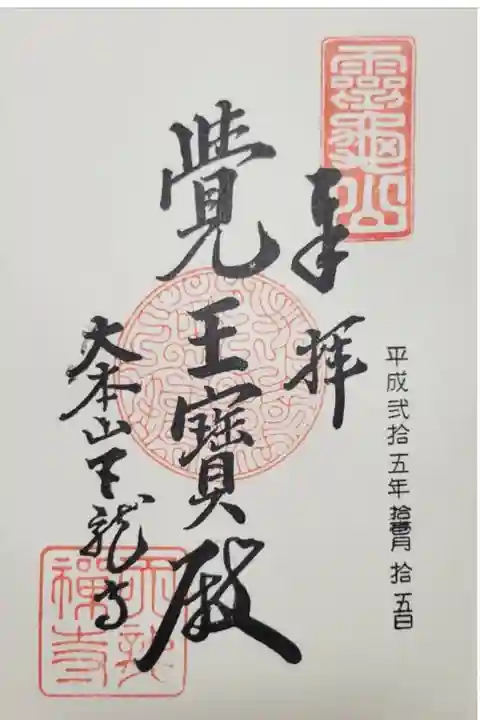 靈龜山
奉拝
平成弐拾五年拾壹月拾五日
覺王寶殿
大本山天龍寺
天龍禪寺